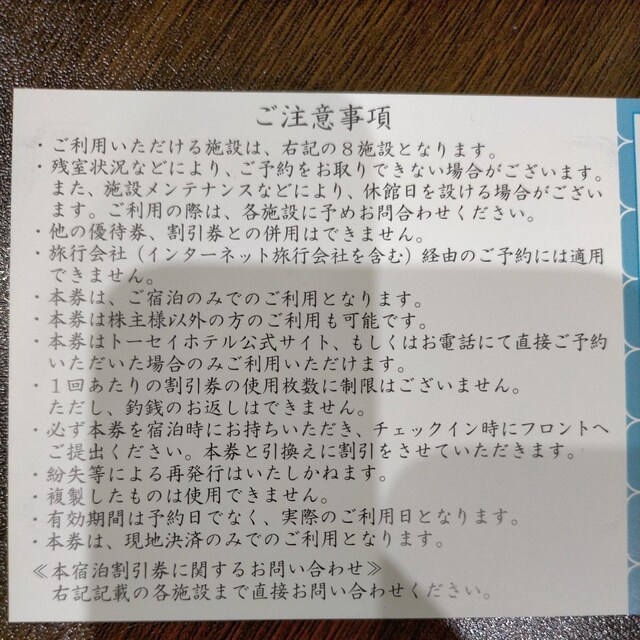 ご注意事項
・ご利用いただける施設は、右記の８施設となります。
・残室状況などにより、ご予約をお取りできない場合がございます。
また、施設メンテナンスなどにより、休館日を設ける場合がござい
ます。ご利用の際は、各施設に予めお問合わせください。
・他の優待券、割引券との併用はできません。
・旅行会社（インターネット旅行会社を含む）経由のご予約には適用
できません。
・本券は、ご宿泊のみでのご利用となります。
・本券は株主様以外の方のご利用も可能です。
・本券はトーセイホテル公式サイト、もしくはお電話にて直接ご予約
いただいた場合のみご利用いただけます。
・１回あたりの割引券の使用枚数に制限はございません。
ただし、釣銭のお返しはできません。
・必ず本券を宿泊時にお持ちいただき、チェックイン時にフロントへ
ご提出ください。本券と引換えに割引をさせていただきます。
・紛失等による再発行はいたしかねます。
・複製したものは使用できません。
・有効期間は予約日でなく、実際のご利用日となります。
・本券は、現地決済のみでのご利用となります。
≪本宿泊割引券に関するお問い合わせ≫
右記記載の各施設まで直接お問い合わせください。